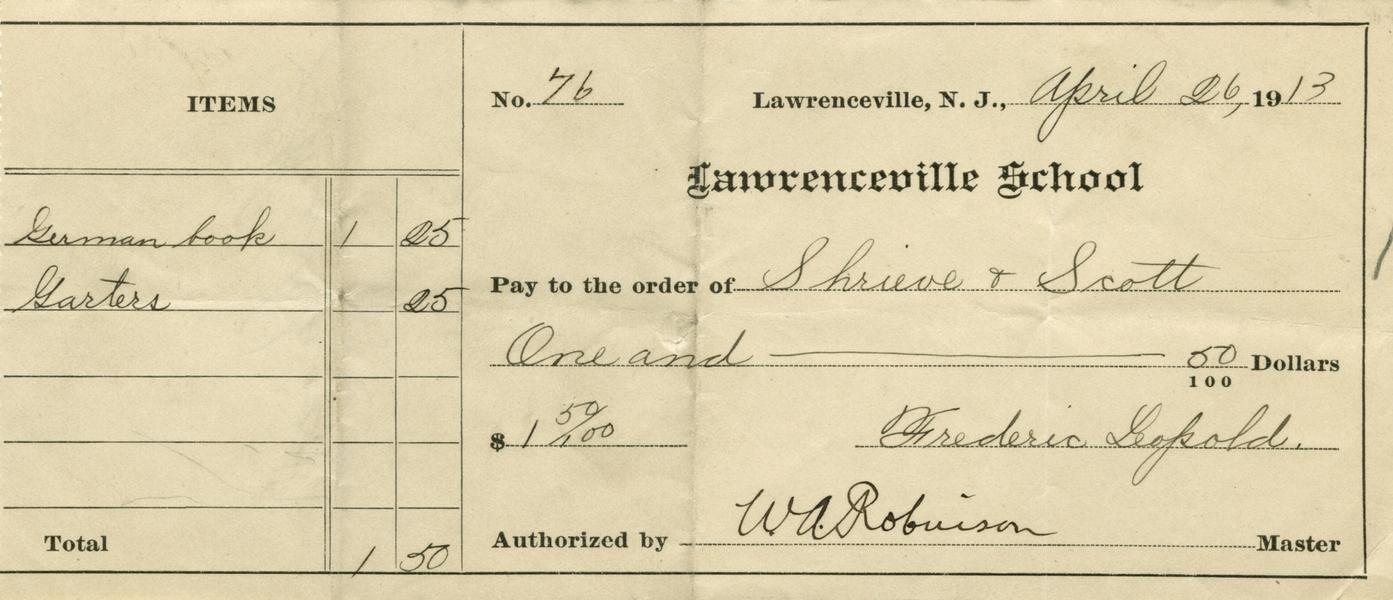 ITEMS
German book 1 25
Garters 25
Total 1 50
No. 76 Lawrenceville, N. J., April 26, 1913
Lawrenceville School
Pay to the order of Shrieve & Scott
One and 50/100 Dollars
$ 1 50/100 Frederic Leopold.
Authorized by W. A. Robinson Master